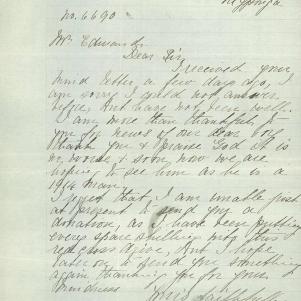 no. 6690
Mr Edwards
Dear Sir,
I received your
kind letter a few days ago, I
am sorry I could not answer
before, But have not been well.
I am more than thankful to
you for news of our dear boy
thank you & praise God it is
no worse & soon now we are
hoping to see him as he is a
1914 man.
I regret that, I am unable just
at present to send you a
donation, as I have been putting
every spare shilling into
red cross But I hope
later on to send you something
again thanking you for your
kindness